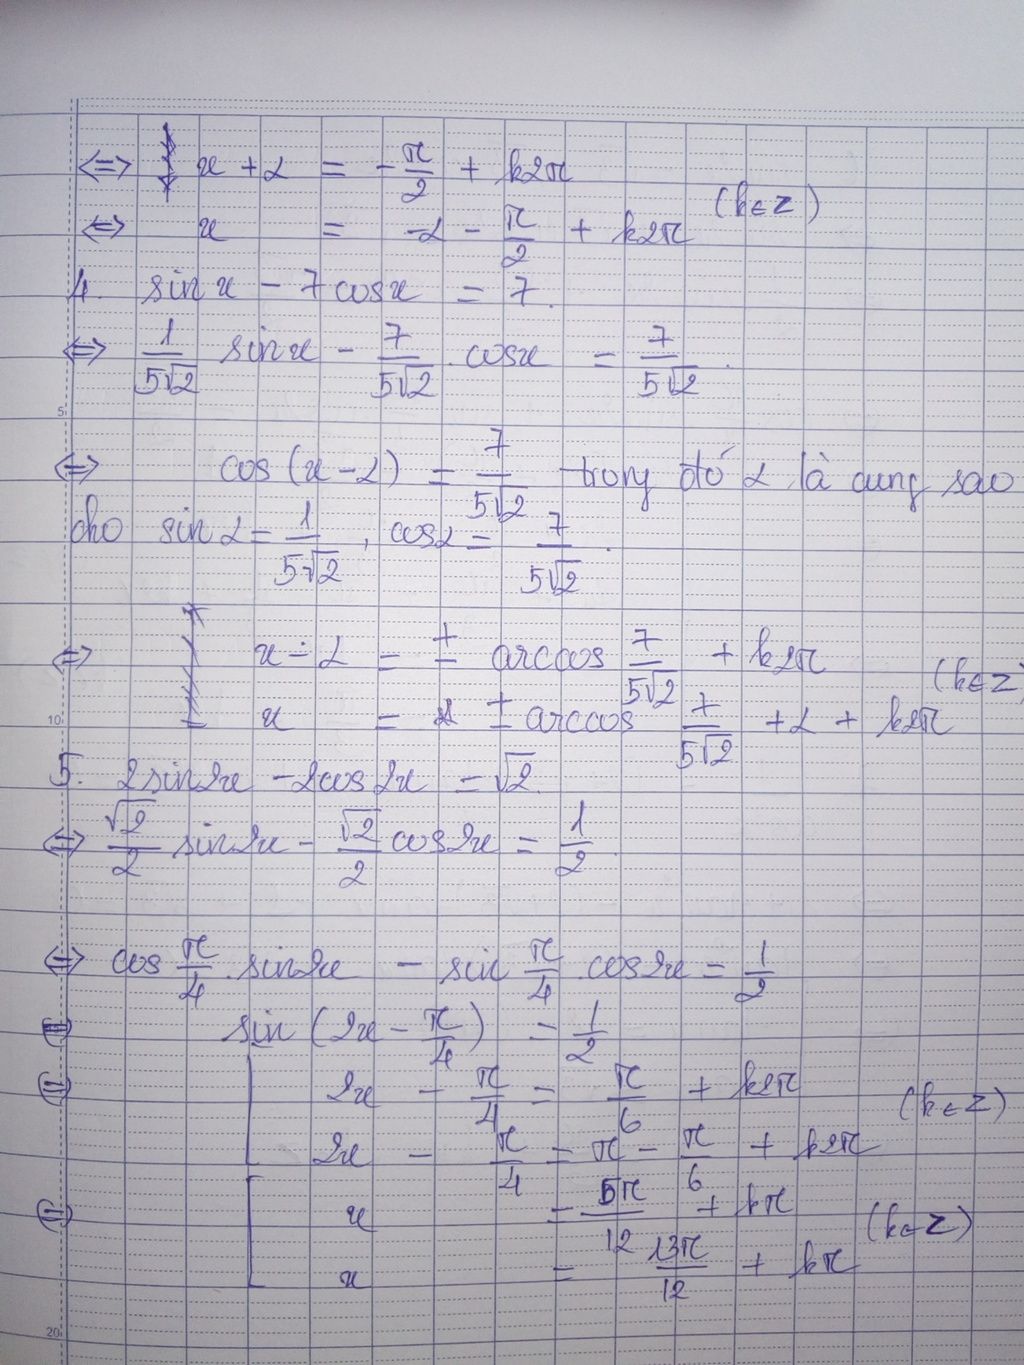 ⇔ x + α = -π/2 + k2π
(k∈Z)
⇔ x = -α - π/2 + k2π
4. sin x - 7cosx = 7.
⇔ 1/5√2 sin x - 7/5√2 . cosx = 7/5√2.
⇔ cos(x - α) = 7/5√2 trong đó α là cung sao
cho sin α = 1/5√2, cosα = 7/5√2.
⇔ x - α = ± arccos 7/5√2 + k2π
(k∈Z)
x = ± arccos 7/5√2 + α + k2π
5. 2sin2x - 2cos2x = √2.
⇔ √2/2 sin2x - √2/2 cos2x = 1/2.
⇔ cos π/4 . sin2x - sin π/4 . cos2x = 1/2
⇔ sin(2x - π/4) = 1/2
⇔ [ 2x - π/4 = π/6 + k2π
(k∈Z)
2x - π/4 = π - π/6 + k2π
⇔ [ x = 5π/12 + kπ
(k∈Z)
x = 13π/12 + kπ
5
10
20